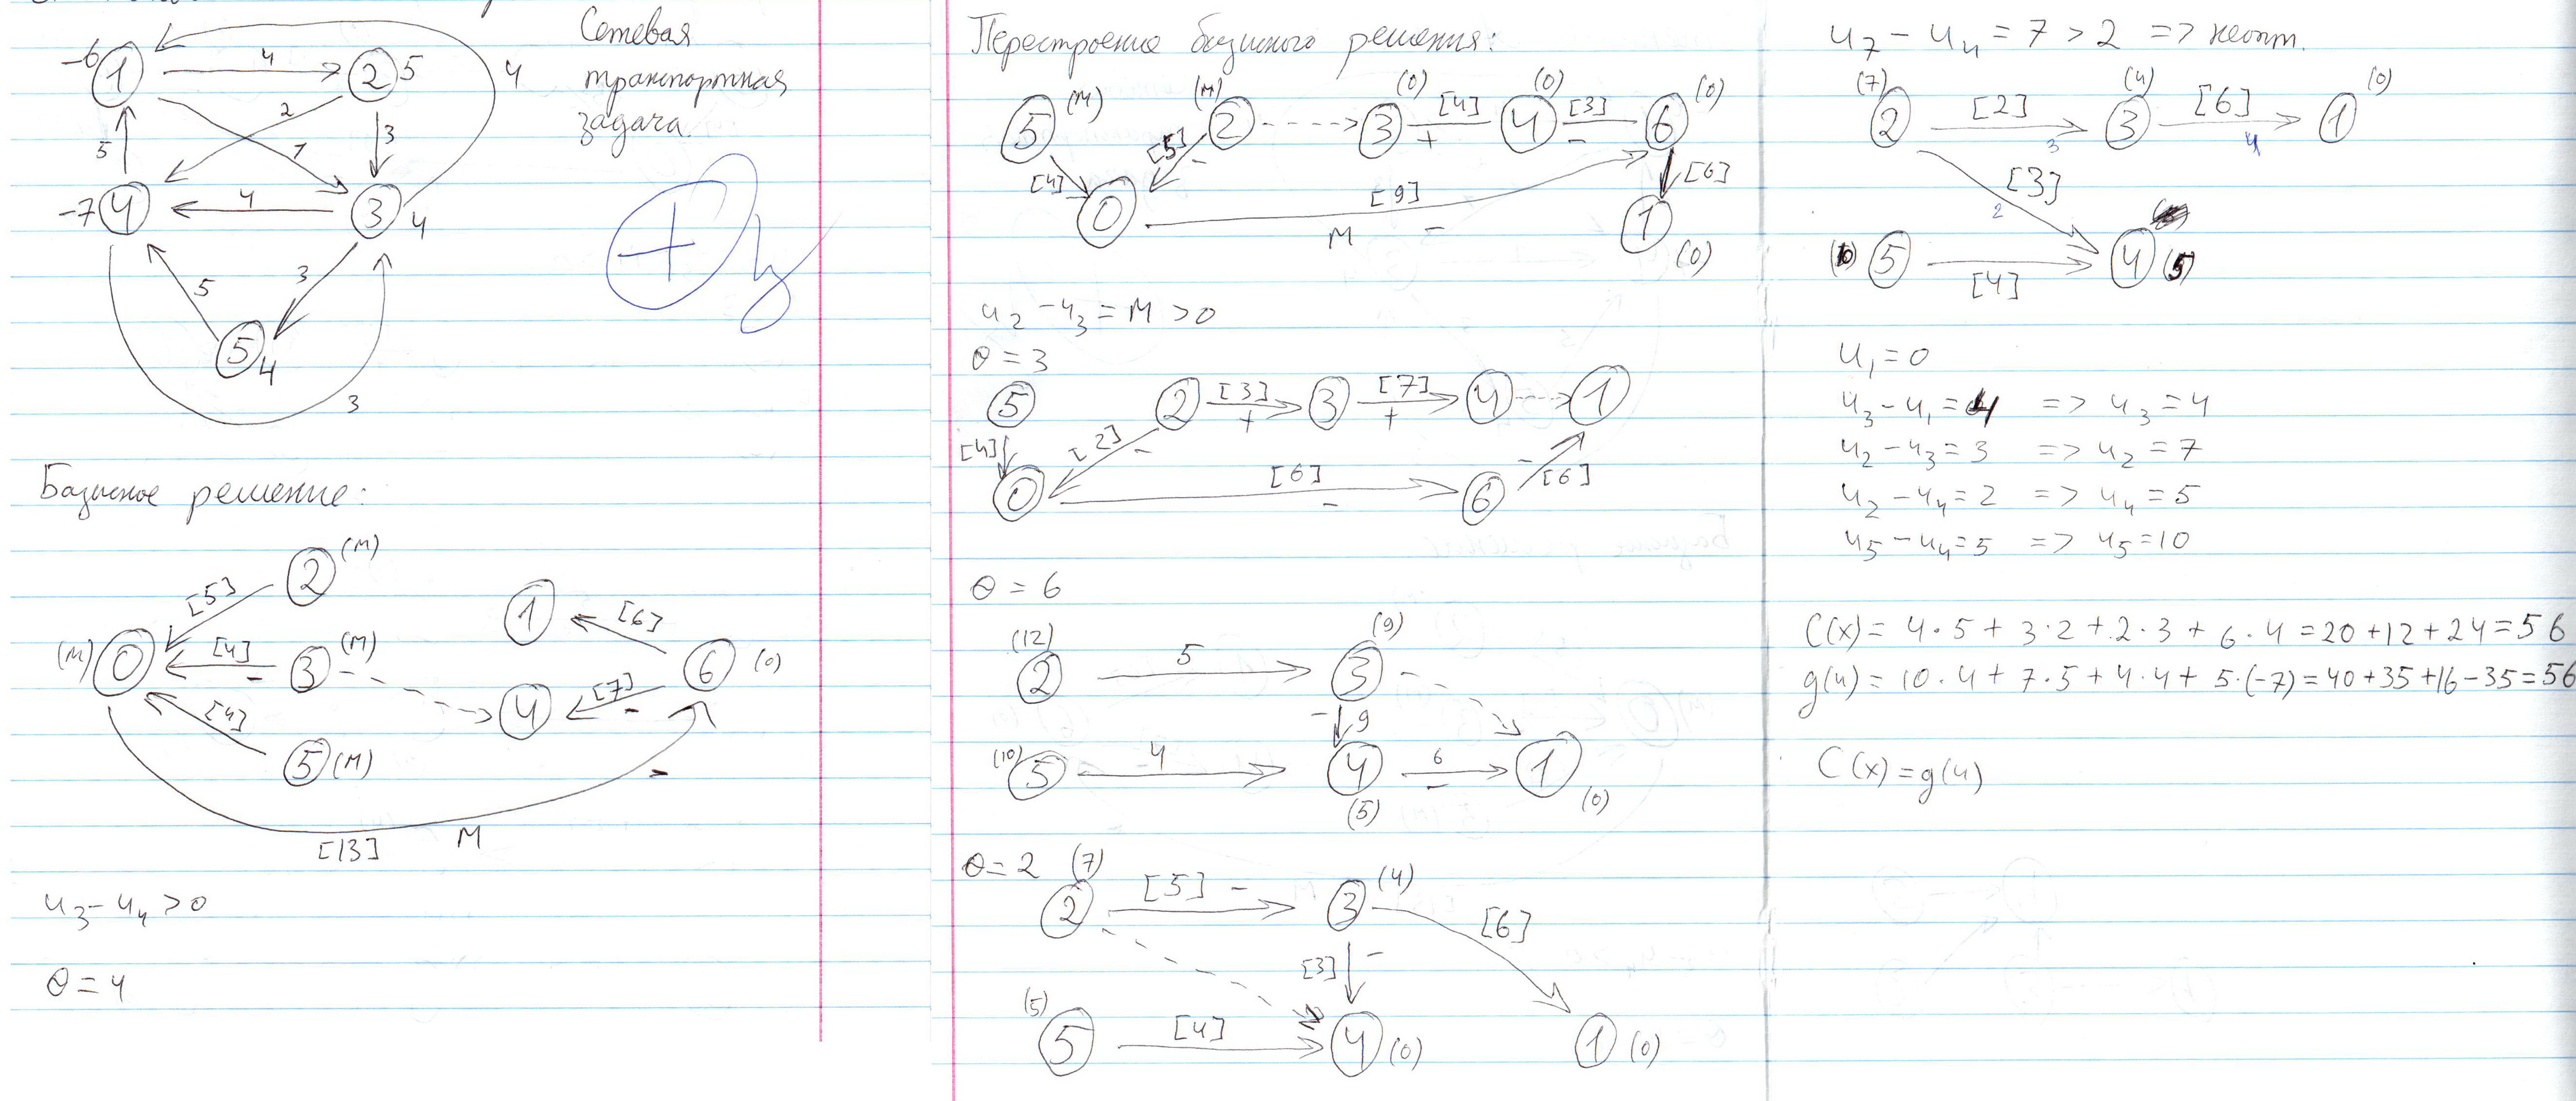 Сетевая
транспортная
задача.
-6 1 4 2 5 4
2 3
5 1
-7 4 4 3 4
5 3
5 4
3
Базисное решение:
2 (M)
[5]
1 [6]
(M) 0 [4] - 3 (M) 6 (0)
4 [7] -
[4]
5 (M)
-
[13] M
u₃ - u₄ > 0
θ = 4
Перестроение базисного решения:
5 (M) (M) 2 (0) 3 [4] + (0) 4 [3] - 6 (0)
[4] [5] - [6]
0 [9] 1
M - (0)
u₂ - u₃ = M > 0
θ = 3
5 2 [3] + 3 [7] + 4 1
[4] [2] -
0 [6] - 6 - [6]
θ = 6
(12) 2 5 (9) 3
- 9
(10) 5 4 4 6 - 1
(5) (0)
θ = 2 (7)
2 [5] - 3 (4)
[6]
[3] -
(5)
5 [4] 4 (0) 1 (0)
u₇ - u₄ = 7 > 2 => неопт.
(7) 2 [2] 3 (4) 3 [6] 4 1 (0)
[3]
2
5 [4] 4 (5)
u₁ = 0
u₃ - u₁ = 4 => u₃ = 4
u₂ - u₃ = 3 => u₂ = 7
u₂ - u₄ = 2 => u₄ = 5
u₅ - u₄ = 5 => u₅ = 10
C(x) = 4·5 + 3·2 + 2·3 + 6·4 = 20 + 12 + 24 = 56
g(u) = 10·4 + 7·5 + 4·4 + 5·(-7) = 40 + 35 + 16 - 35 = 56
C(x) = g(u)